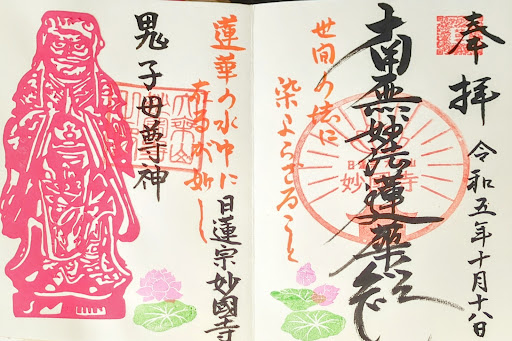 奉拝
令和五年十月十八日
南無妙法蓮華経
妙國寺
世間の法に
染まらざること
蓮華の水中に
在るが如し
日蓮宗妙國寺
鬼子母尊神